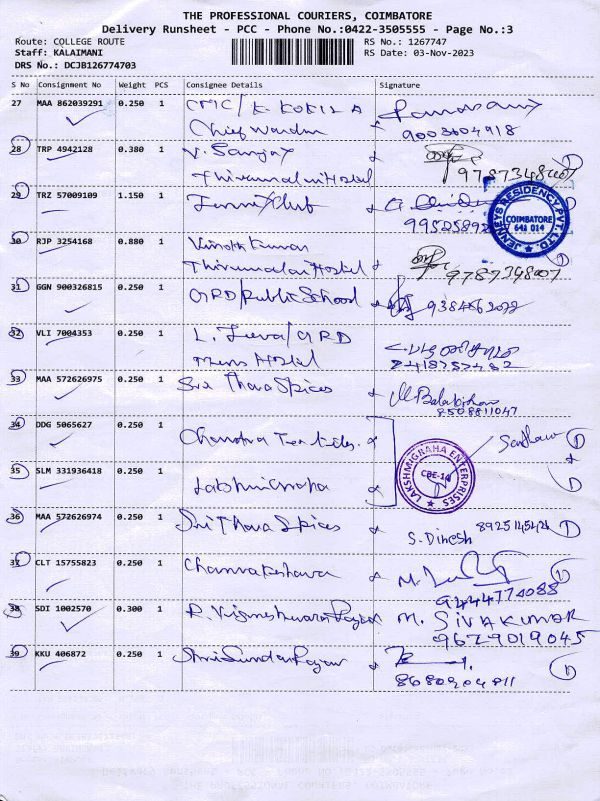 THE PROFESSIONAL COURIERS, COIMBATORE
Delivery Runsheet - PCC - Phone No.:0422-3505555 - Page No.:3
Route: COLLEGE ROUTE
RS No.: 1267747
Staff: KALAIMANI
RS Date: 03-Nov-2023
DRS No.: DCJB126774703
S No Consignment No Weight PCS Consignee Details Signature
27 MAA 862039291 0.250 1
Chief Warden 9003604918
28 TRP 4942128 0.380 1 V. Sanjay
Thirumalai Hostel 9787348007
29 TRZ 57009109 1.150 1 Club
JENNEYS RESIDENCY PVT. LTD. COIMBATORE 641 014
30 RJP 3254168 0.880 1 Vinoth Kumar
Thirumalai Hostel 9787348007
31 GGN 900326815 0.250 1 GRD Public School
32 VLI 7004353 0.250 1 L. Jeeva / GRD
Mens Hostel
33 MAA 572626975 0.250 1 Sri Thara Spices M. Balakrishnan
8508811047
34 DDG 5065627 0.250 1 Chandra Textiles.
LAKSHMIGRAHA ENTERPRISES CBE-14
35 SLM 331936418 0.250 1 Lakshmigraha
36 MAA 572626974 0.250 1 Sri Thara Spices
S. Dinesh
37 CLT 15755823 0.250 1 Channakeshava
9244774088
38 SDI 1002570 0.300 1 R. Vigneshwaran M. SIVAKUMAR
9629019045
39 KKU 406872 0.250 1
8680204811